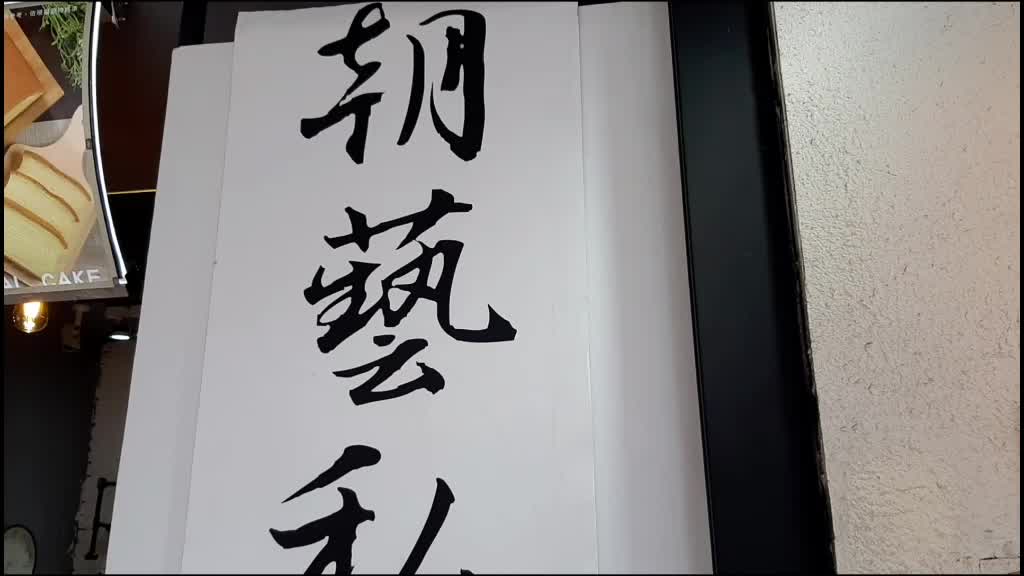 朝藝私
CAKE